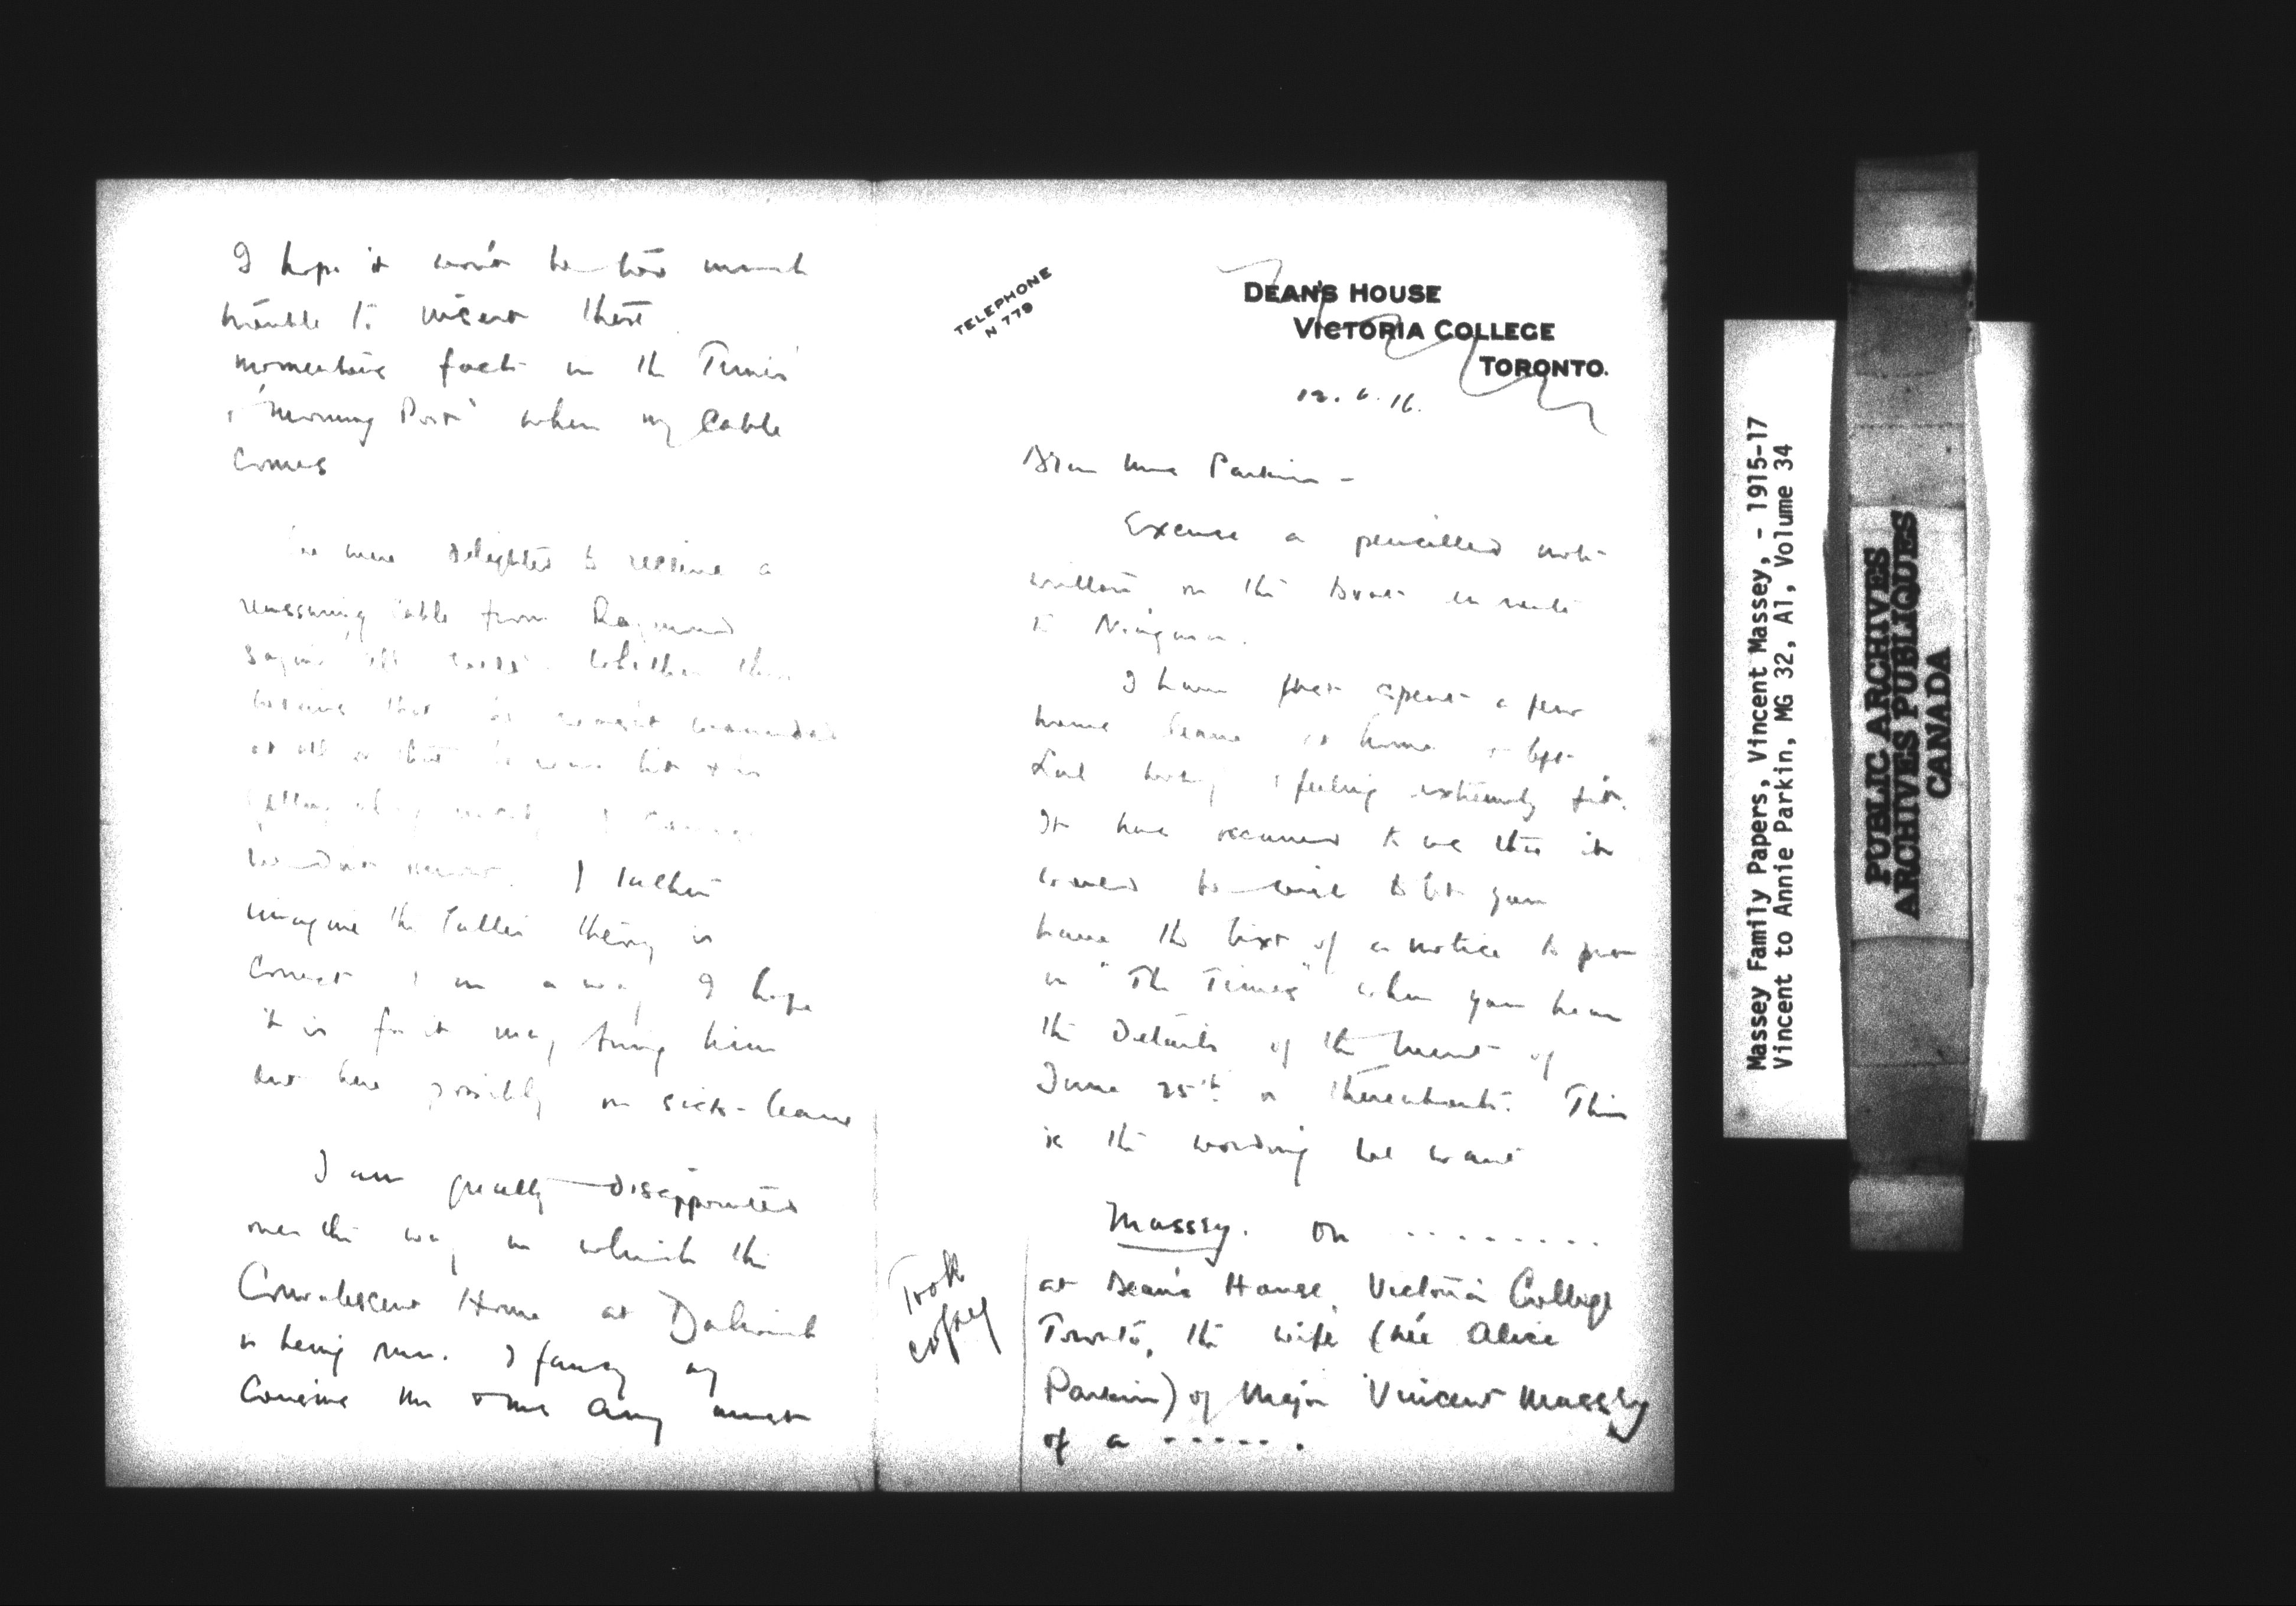 TELEPHONE
N 779
DEAN'S HOUSE
VICTORIA COLLEGE
TORONTO.
12. 6. 16.
Dear Mrs Parkin –
Excuse a pencilled note
written on the boat en route
to Niagara.
I have just spent a few
hours leave at home & left
Lal looking & feeling extremely fit.
It has occurred to me that it
would be wise to let you
have the text of a notice to put
in "The Times" when you hear
the details of the event of
June 25th or thereabouts. This
is the wording we want
Massey. On .........
at Dean's House, Victoria College
Toronto, the wife (née Alice
Parkin) of Major Vincent Massey
of a ..... .
Took
copy
I hope it won't be too much
trouble to insert these
momentous facts in the 'Times'
& 'Morning Post' when my cable
comes
We were delighted to receive a
reassuring cable from Raymond
saying "all Whether this
means that he wasn't wounded
at all or that he was hit & is
getting along nicely I
don't know. I rather
imagine the latter theory is
correct & in a way I hope
it is for it may bring him
out here possibly on sick-leave
I am greatly disappointed
over the way in which the
Convalescent Home at Dulwich
is being run. I fancy my
cousins Mr & Mrs Amy must
Massey Family Papers, Vincent Massey, - 1915-17
Vincent to Annie Parkin, MG 32, A1, Volume 34
PUBLIC ARCHIVES
ARCHIVES PUBLIQUES
CANADA